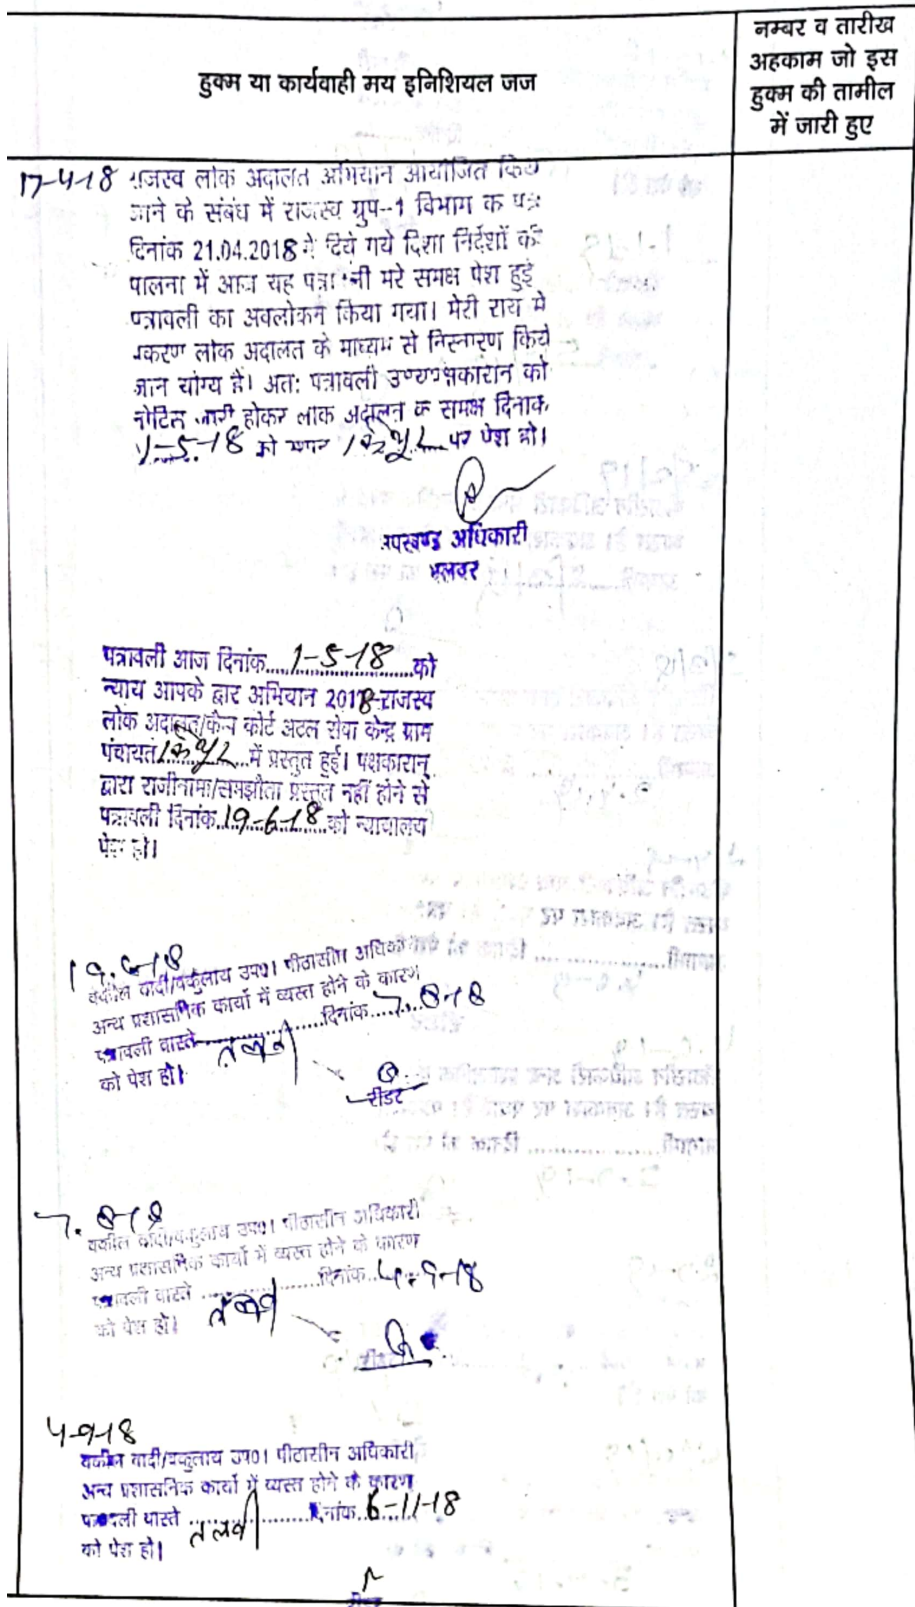 हुक्म या कार्यवाही मय इनिशियल जज
नम्बर व तारीख
अहकाम जो इस
हुक्म की तामील
में जारी हुए
17-4-18 राजस्व लोक अदालत अभियान आयोजित किये
जाने के संबंध में राजस्व ग्रुप-1 विभाग के पत्र
दिनांक 21.04.2018 में दिये गये दिशा निर्देशों की
पालना में आज यह पत्रावली मेरे समक्ष पेश हुई
पत्रावली का अवलोकन किया गया। मेरी राय मे
प्रकरण लोक अदालत के माध्यम से निस्तारण किये
जाने योग्य है। अतः पत्रावली उभयपक्षकारान को
नोटिस जारी होकर लोक अदालत के समक्ष दिनांक
1-5-18 को पर पेश हो।
उपखण्ड अधिकारी
अलवर
पत्रावली आज दिनांक 1-5-18 को
न्याय आपके द्वार अभियान 2018-राजस्व
लोक अदालत/कैम्प कोर्ट अटल सेवा केन्द्र ग्राम
पंचायत में प्रस्तुत हुई। पक्षकारान्
द्वारा राजीनामा/समझौता प्रस्तुत नहीं होने से
पत्रावली दिनांक 19-6-18 को न्यायालय
पेश हो।
19.6-18
वकील वादी/वकुलाय उप0। पीठासीन अधिकारी
अन्य प्रशासनिक कार्यो में व्यस्त होने के कारण
पत्रावली वास्ते तलबी दिनांक 7.8-18
को पेश हो।
रीडर
7.8-18
वकील वादी/वकुलाय उप0। पीठासीन अधिकारी
अन्य प्रशासनिक कार्यो में व्यस्त होने के कारण
पत्रावली वास्ते तलबी दिनांक 4-9-18
को पेश हो।
4-9-18
वकील वादी/वकुलाय उप0। पीठासीन अधिकारी
अन्य प्रशासनिक कार्यो में व्यस्त होने के कारण
पत्रावली वास्ते तलबी दिनांक 6-11-18
को पेश हो।